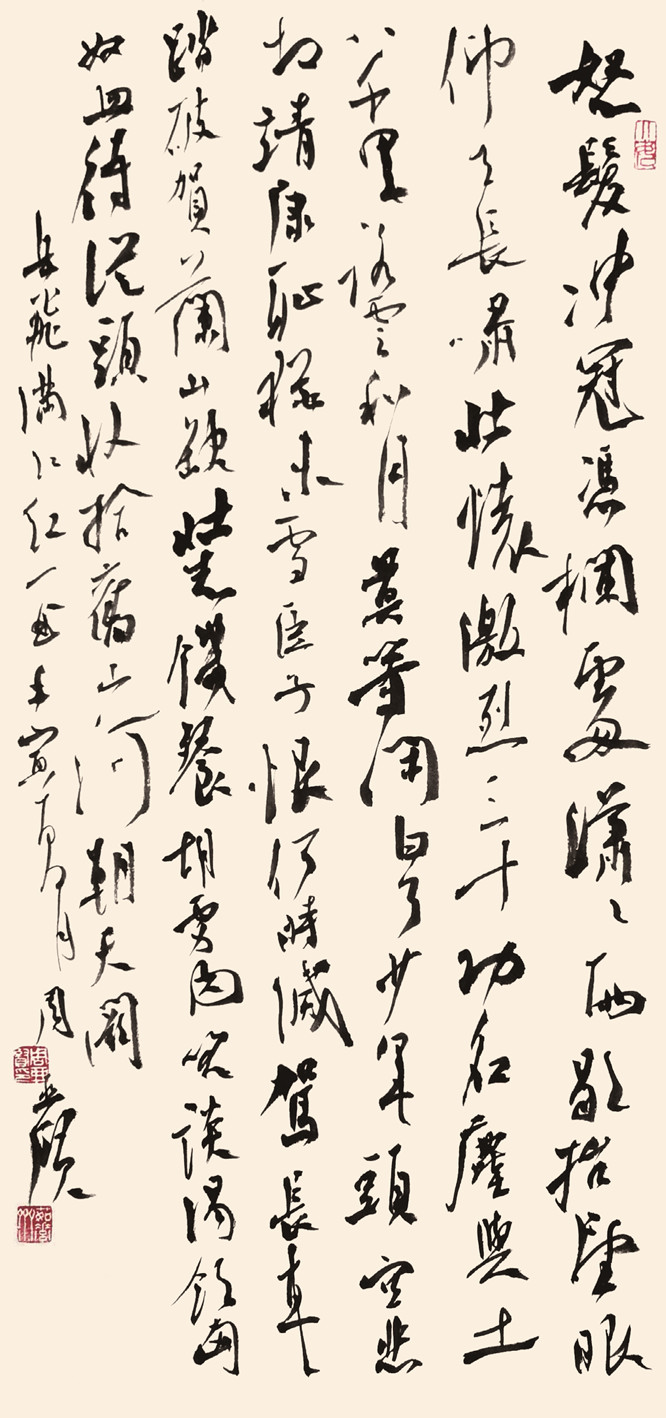 怒髮冲冠憑欄處瀟〻雨歇抬望眼
仰天長嘯壯懷激烈三十功名塵與土
八千里路雲和月莫等閑白了少年頭空悲
切靖康耻猶未雪臣子恨何時滅駕長車
踏破賀蘭山缺壯志饑餐胡虜肉笑談渴飲匈
奴血待從頭收拾舊山河朝天闕
岳飛滿江红一首壬寅夏月周